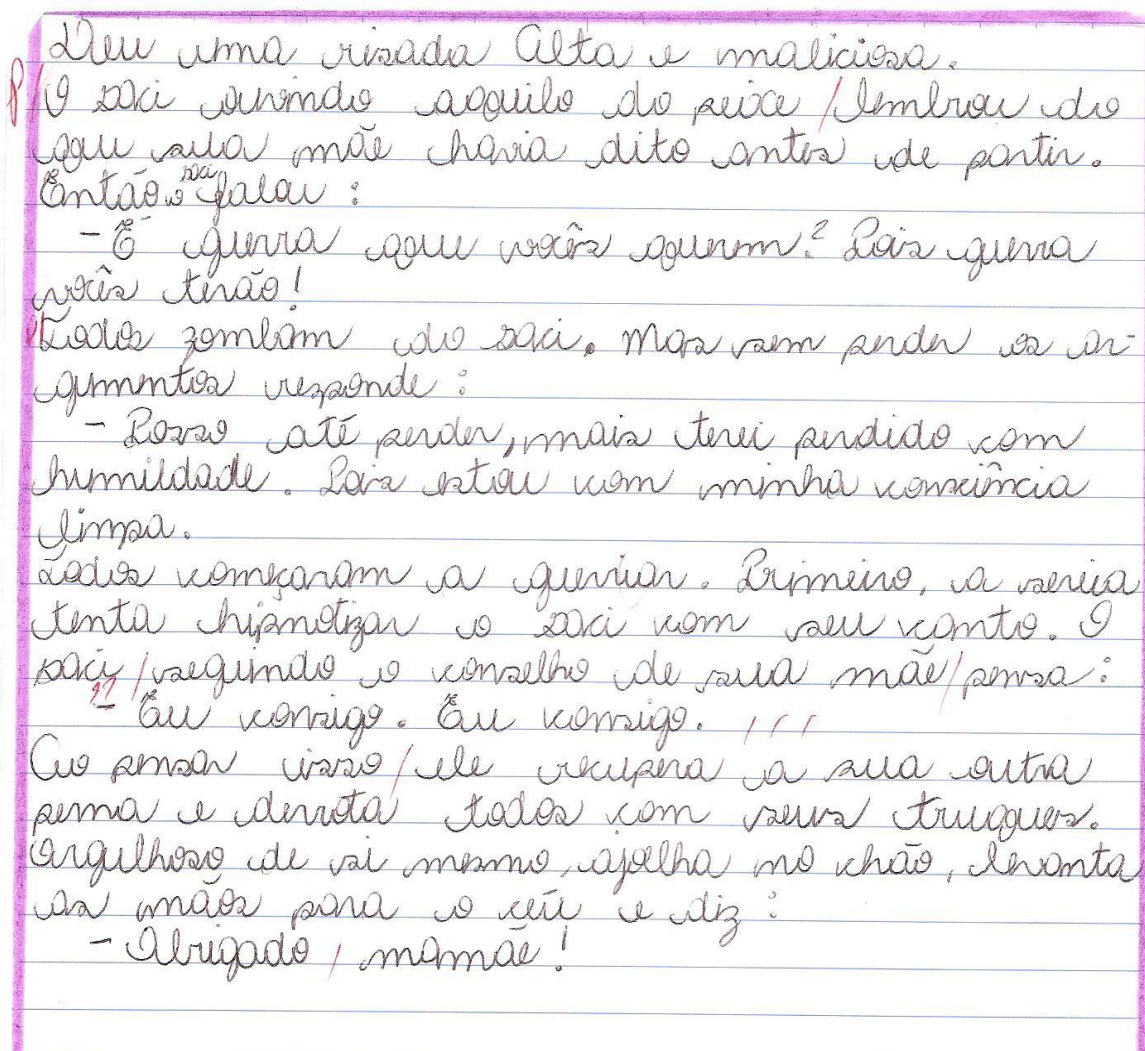 Deu uma risada alta e maliciosa.
O saci ouvindo aquilo do peixe / lembrou do
que sua mãe havia dito antes de partir.
Então o saci falou :
- É guerra que vocês querem? Pois guerra
vocês terão!
Todos zombam do saci. Mas sem perder os ar-
gumentos responde :
- Posso até perder, mais terei perdido com
humildade. Pois estou com minha consciência
limpa.
Todos começaram a guerriar. Primeiro, a sereia
tenta hipnotizar o saci com seu canto. O
saci / seguindo o conselho de sua mãe / pensa :
- Eu consigo. Eu consigo.
Ao pensar isso / ele recupera a sua outra
perna e derrota todos com seus truques.
Orgulhoso de si mesmo, ajoelha no chão, levanta
as mãos para o céu e diz :
- Obrigado / mamãe!